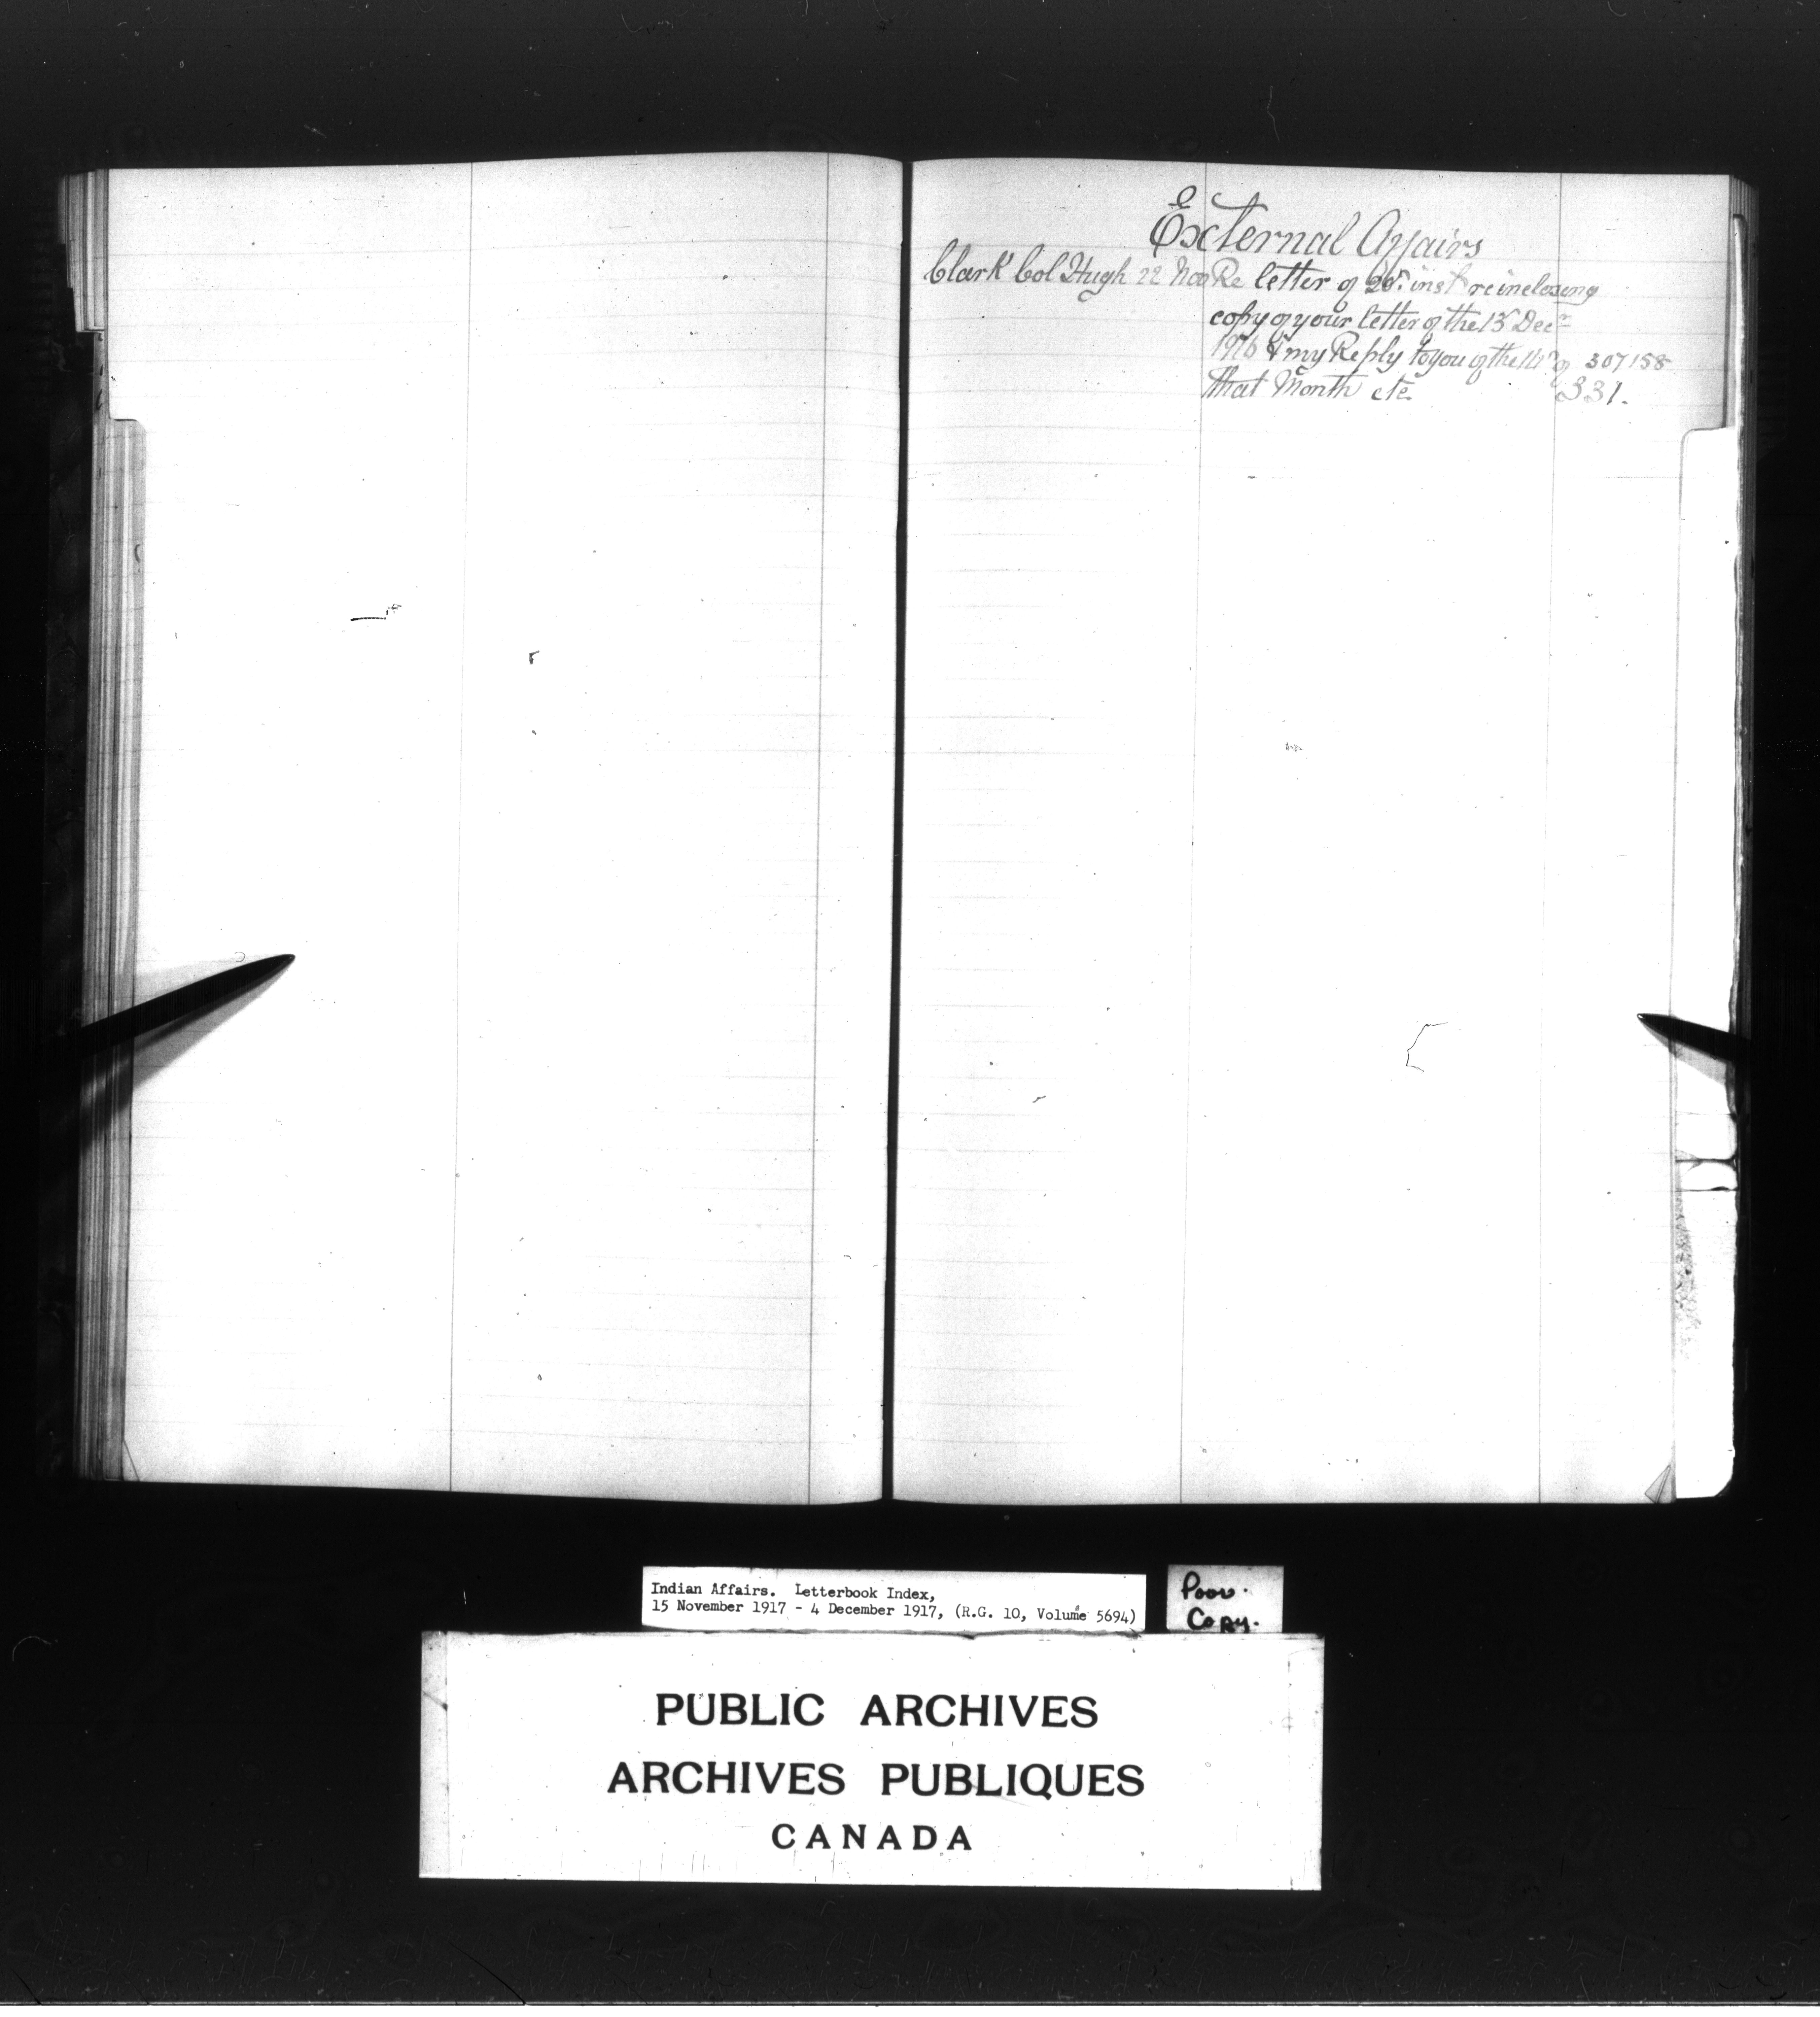 External Affairs
Clark Col Hugh 22 Nov Re letter of 20th inst re inclosing
copy of your letter of the 13th Decr
1916 & my Reply to you of the 14th of 307158
that Month etc. 331.
Indian Affairs. Letterbook Index,
15 November 1917 - 4 December 1917, (R.G. 10, Volume 5694)
Poor.
Copy.
PUBLIC ARCHIVES
ARCHIVES PUBLIQUES
CANADA